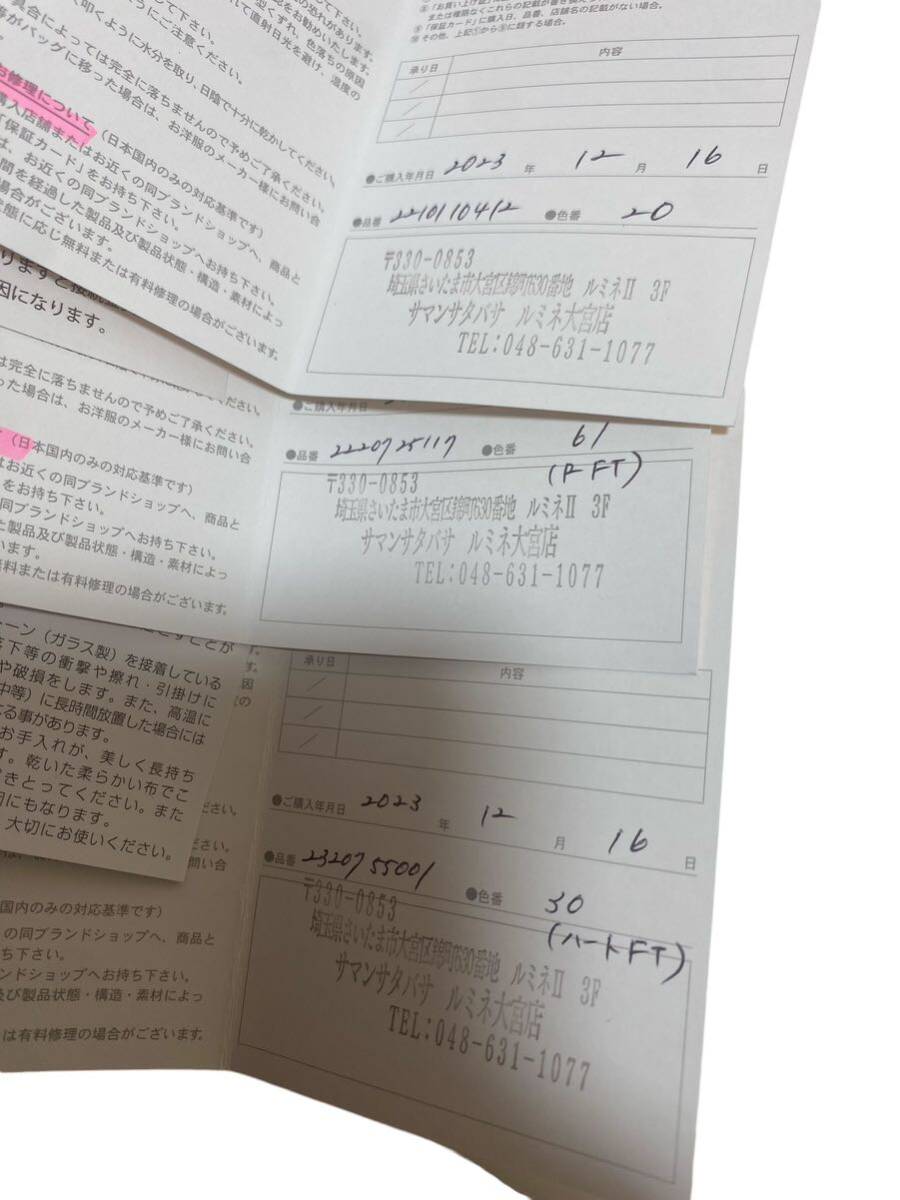 または複製などこれらの記載が書き換え
⑤「保証カード」に購入日、品番、店舗名の記載がない場合。
承り日
内容
●ご購入年月日 2023 年 12 月 16 日
●品番 2210110412 ●色番 20
〒330-0853
埼玉県さいたま市大宮区錦町630番地 ルミネⅡ 3F
サマンサタバサ ルミネ大宮店
TEL:048-631-1077
て下さい。
叩くように水分を取り、日陰で十分に乾かしてください。
具合によっては完全に落ちませんので予めご了承ください。
バッグに移った場合は、お洋服のメーカー様にお問い合
修理について(日本国内のみの対応基準です)
購入店舗またはお近くの同ブランドショップへ、商品と
「保証カード」をお持ち下さい。
は、お近くの同ブランドショップへお持ち下さい。
間を経過した製品及び製品状態・構造・素材によっ
場合がございます。
状態に応じ無料または有料修理の場合がございます。
因になります。
は完全に落ちませんので予めご了承ください。
った場合は、お洋服のメーカー様にお問い合
(日本国内のみの対応基準です)
はお近くの同ブランドショップへ、商品と
をお持ち下さい。
同ブランドショップへお持ち下さい。
た製品及び製品状態・構造・素材によっ
います。
無料または有料修理の場合がございます。
●ご購入年月日
●品番 2220725117 ●色番 61
(P FT)
〒330-0853
埼玉県さいたま市大宮区錦町630番地 ルミネⅡ 3F
サマンサタバサ ルミネ大宮店
TEL:048-631-1077
ーン(ガラス製)を接着している
落下等の衝撃や擦れ・引掛けに
や破損をします。また、高温に
中等)に長時間放置した場合には
る事があります。
お手入れが、美しく長持ち
す。乾いた柔らかい布でこ
きとってください。また
因にもなります。
大切にお使いください。
承り日
内容
●ご購入年月日 2023 年 12 月 16 日
●品番 2320755001 ●色番 30
(ハートFT)
〒330-0853
埼玉県さいたま市大宮区錦町630番地 ルミネⅡ 3F
サマンサタバサ ルミネ大宮店
TEL:048-631-1077
国内のみの対応基準です)
の同ブランドショップへ、商品と
ち下さい。
ンドショップへお持ち下さい。
及び製品状態・構造・素材によっ
は有料修理の場合がございます。